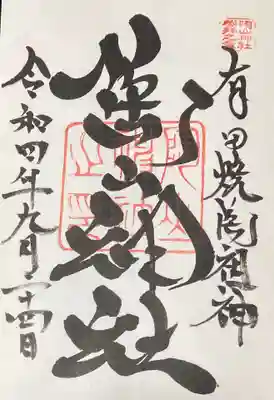 有田焼陶祖神
陶山神社
令和四年九月二十四日